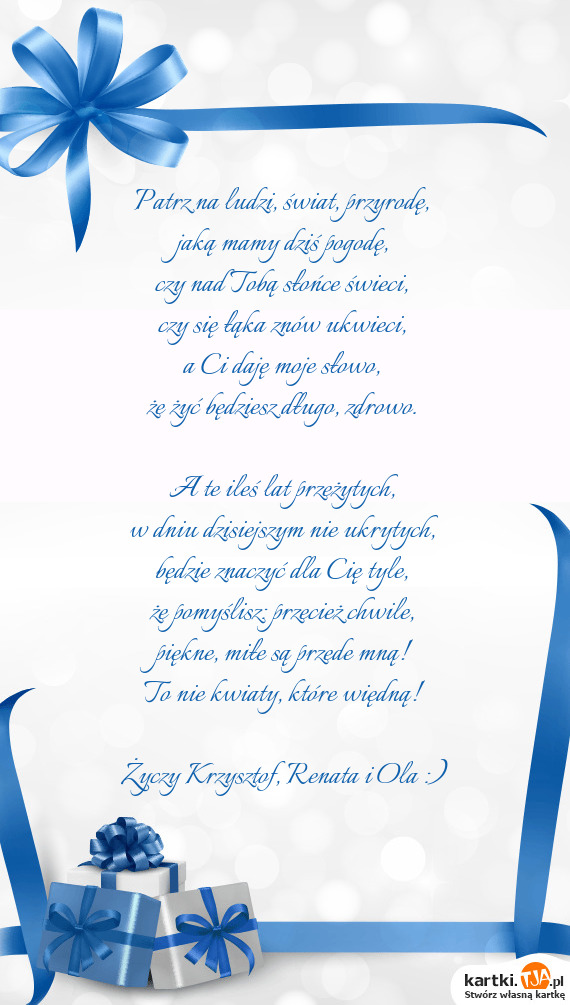 Patrz na ludzi, świat, przyrodę,
jaką mamy dziś pogodę,
czy nad Tobą słońce świeci,
czy się łąka znów ukwieci,
a Ci daję moje słowo,
że żyć będziesz długo, zdrowo.

A te ileś lat przeżytych,
w dniu dzisiejszym nie ukrytych,
będzie znaczyć dla Cię tyle,
że pomyślisz: przecież chwile,
piękne, miłe są przede mną!
To nie kwiaty, które więdną!

Życzy Krzysztof, Renata i Ola :)
kartki.TJA.pl
Stwórz własną kartkę